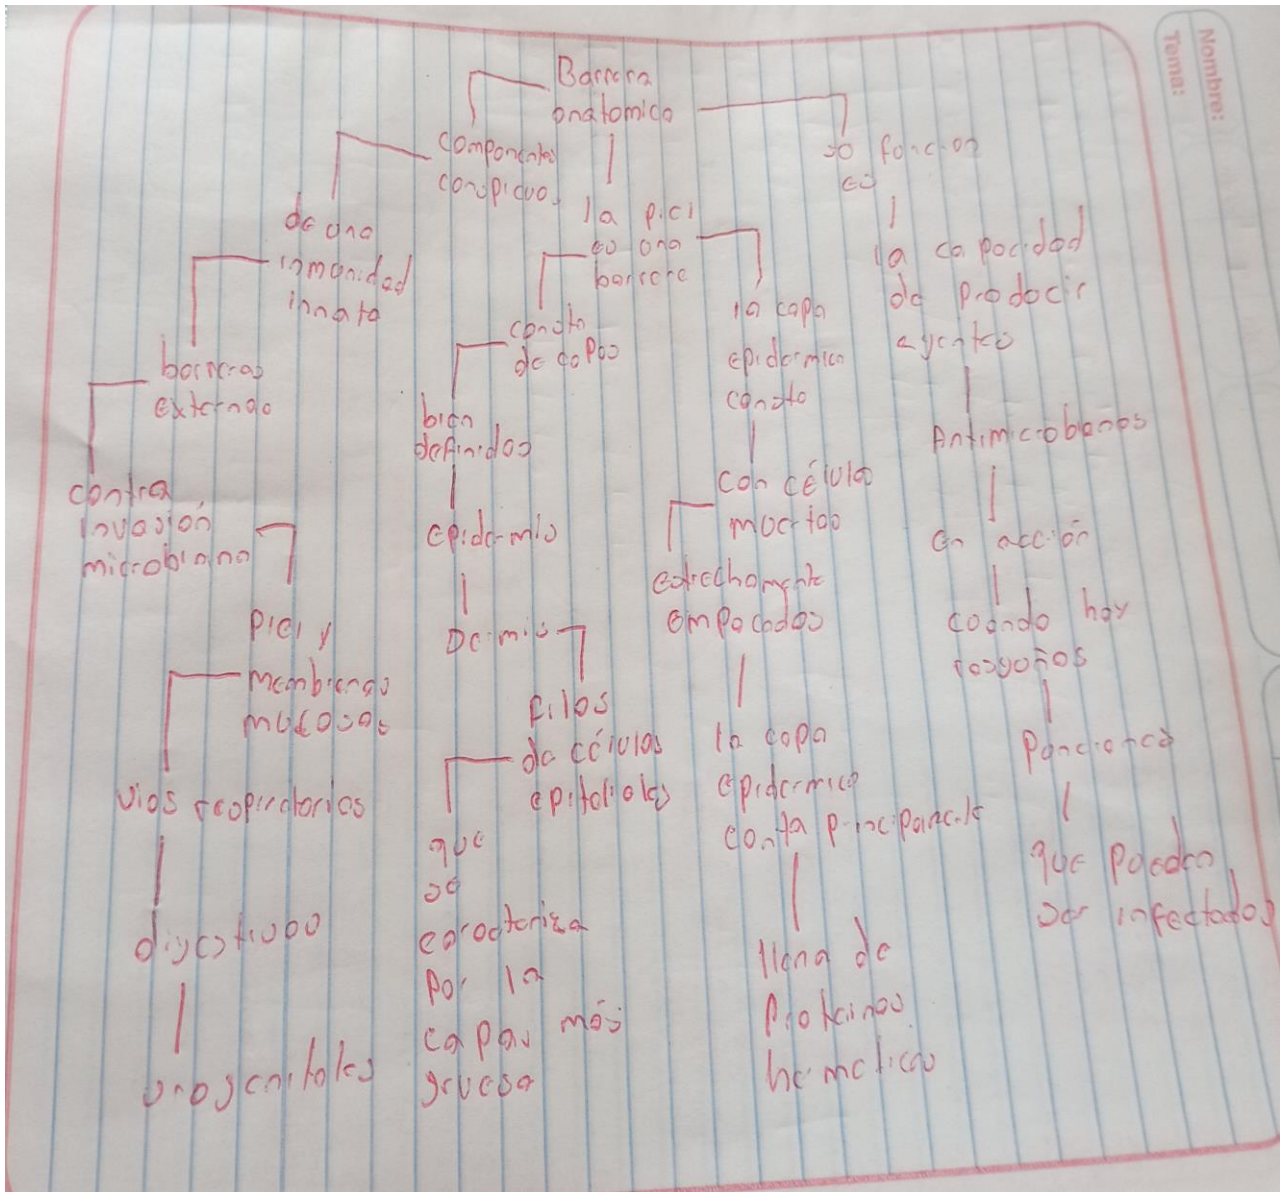 Nombre:
Tema:
Barrera
anatomica
componentes
conspicuos
de una
inmunidad
innata
barreras
externas
contra
invasión
microbiana
piel y
membranas
mucosas
vias respiratorias
digestivas
urogenitales
la piel
es una
barrera
consta
de capas
bien
definidas
epidermis
Dermis
Filos
de células
epiteliales
que
se
caracteriza
por la
capas más
gruesa
la capa
epidermica
consta
con células
muertas
estrechamente
empacados
la capa
epidermica
conta
llena de
proteinas
su funcion
es
la capacidad
de producir
agentes
Antimicrobianos
en acción
cuando hay
rasguños
Punciones
que pueden
ser infectados